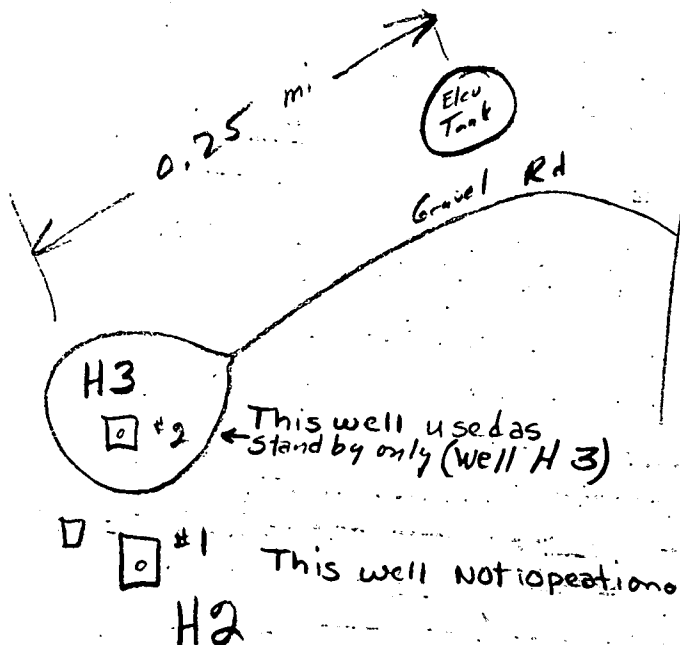 0.25 mi
Elev
Tank
Gravel Rd
H3
#2
This well used as
Stand by only (Well H 3)
#1
This well Not iopeationa
H2